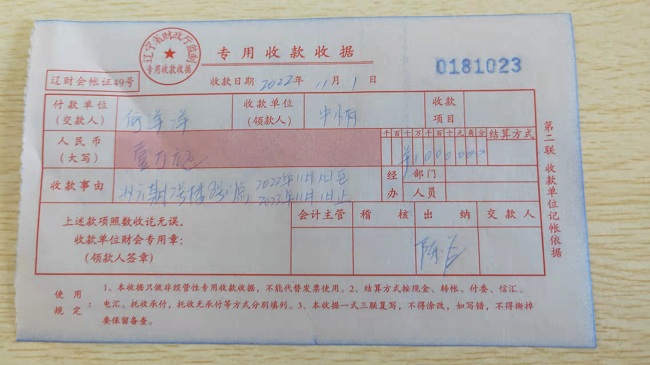 辽宁省财政厅监制
专用收款收据
专用收款收据
0181023
辽财会帐证49号
收款日期 2022年11月1日
付款单位
(交款人)
收款单位
(领款人)
收款
项目
人民币
(大写)
壹万元
千百十万千百十元角分
结算方式
¥1000000
收款事由
2022年11月1日至
2023年11月1日止
经办
部门
人员
上述款项照数收讫无误。
收款单位财会专用章:
(领款人签章)
会计主管
稽核
出纳
交款人
第二联 收款单位记帐依据
使用规定:
1、本收据只做非经营性专用收款收据,不能代替发票使用。2、结算方式按现金、转帐、付委、信汇、
电汇,托收承付,托收无承付等方式分别填列。3、本收据一式三联复写,不得涂改,如写错,不得撕掉
要保留备查。